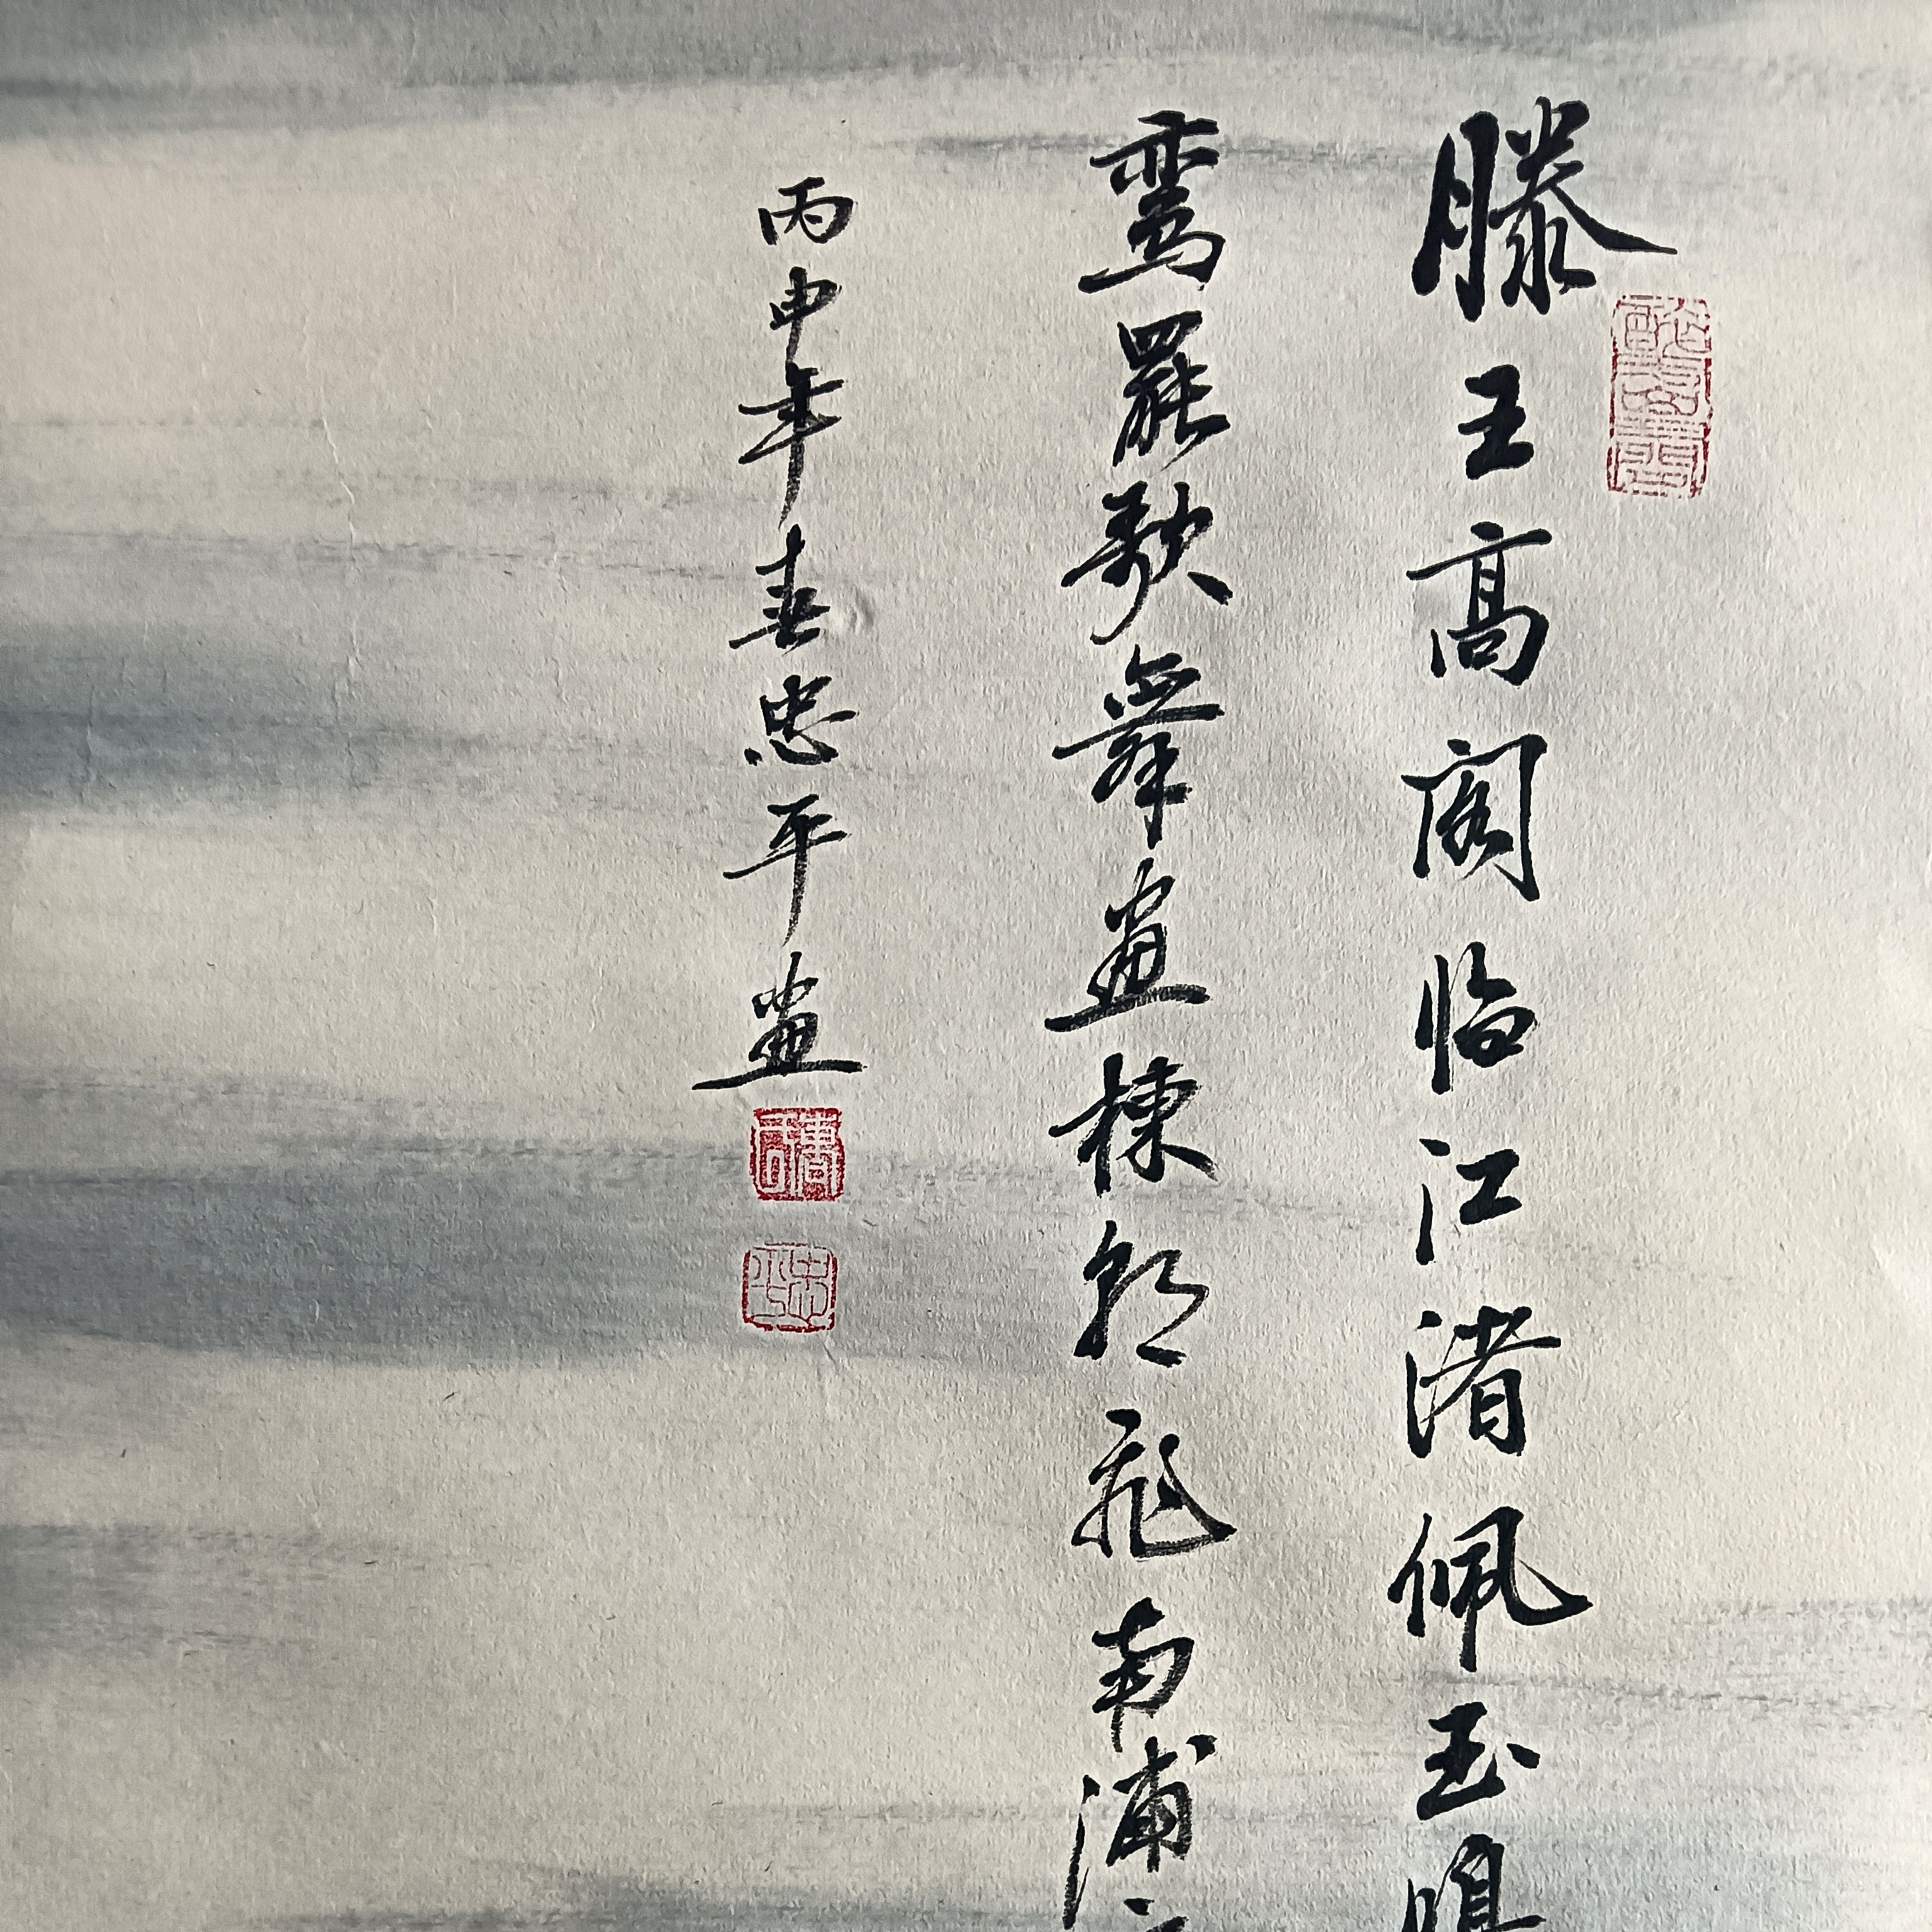 滕王高阁临江渚佩玉鳴
鸾罷歌舞畫棟朝飛南浦
丙申年春忠平畫
忠平